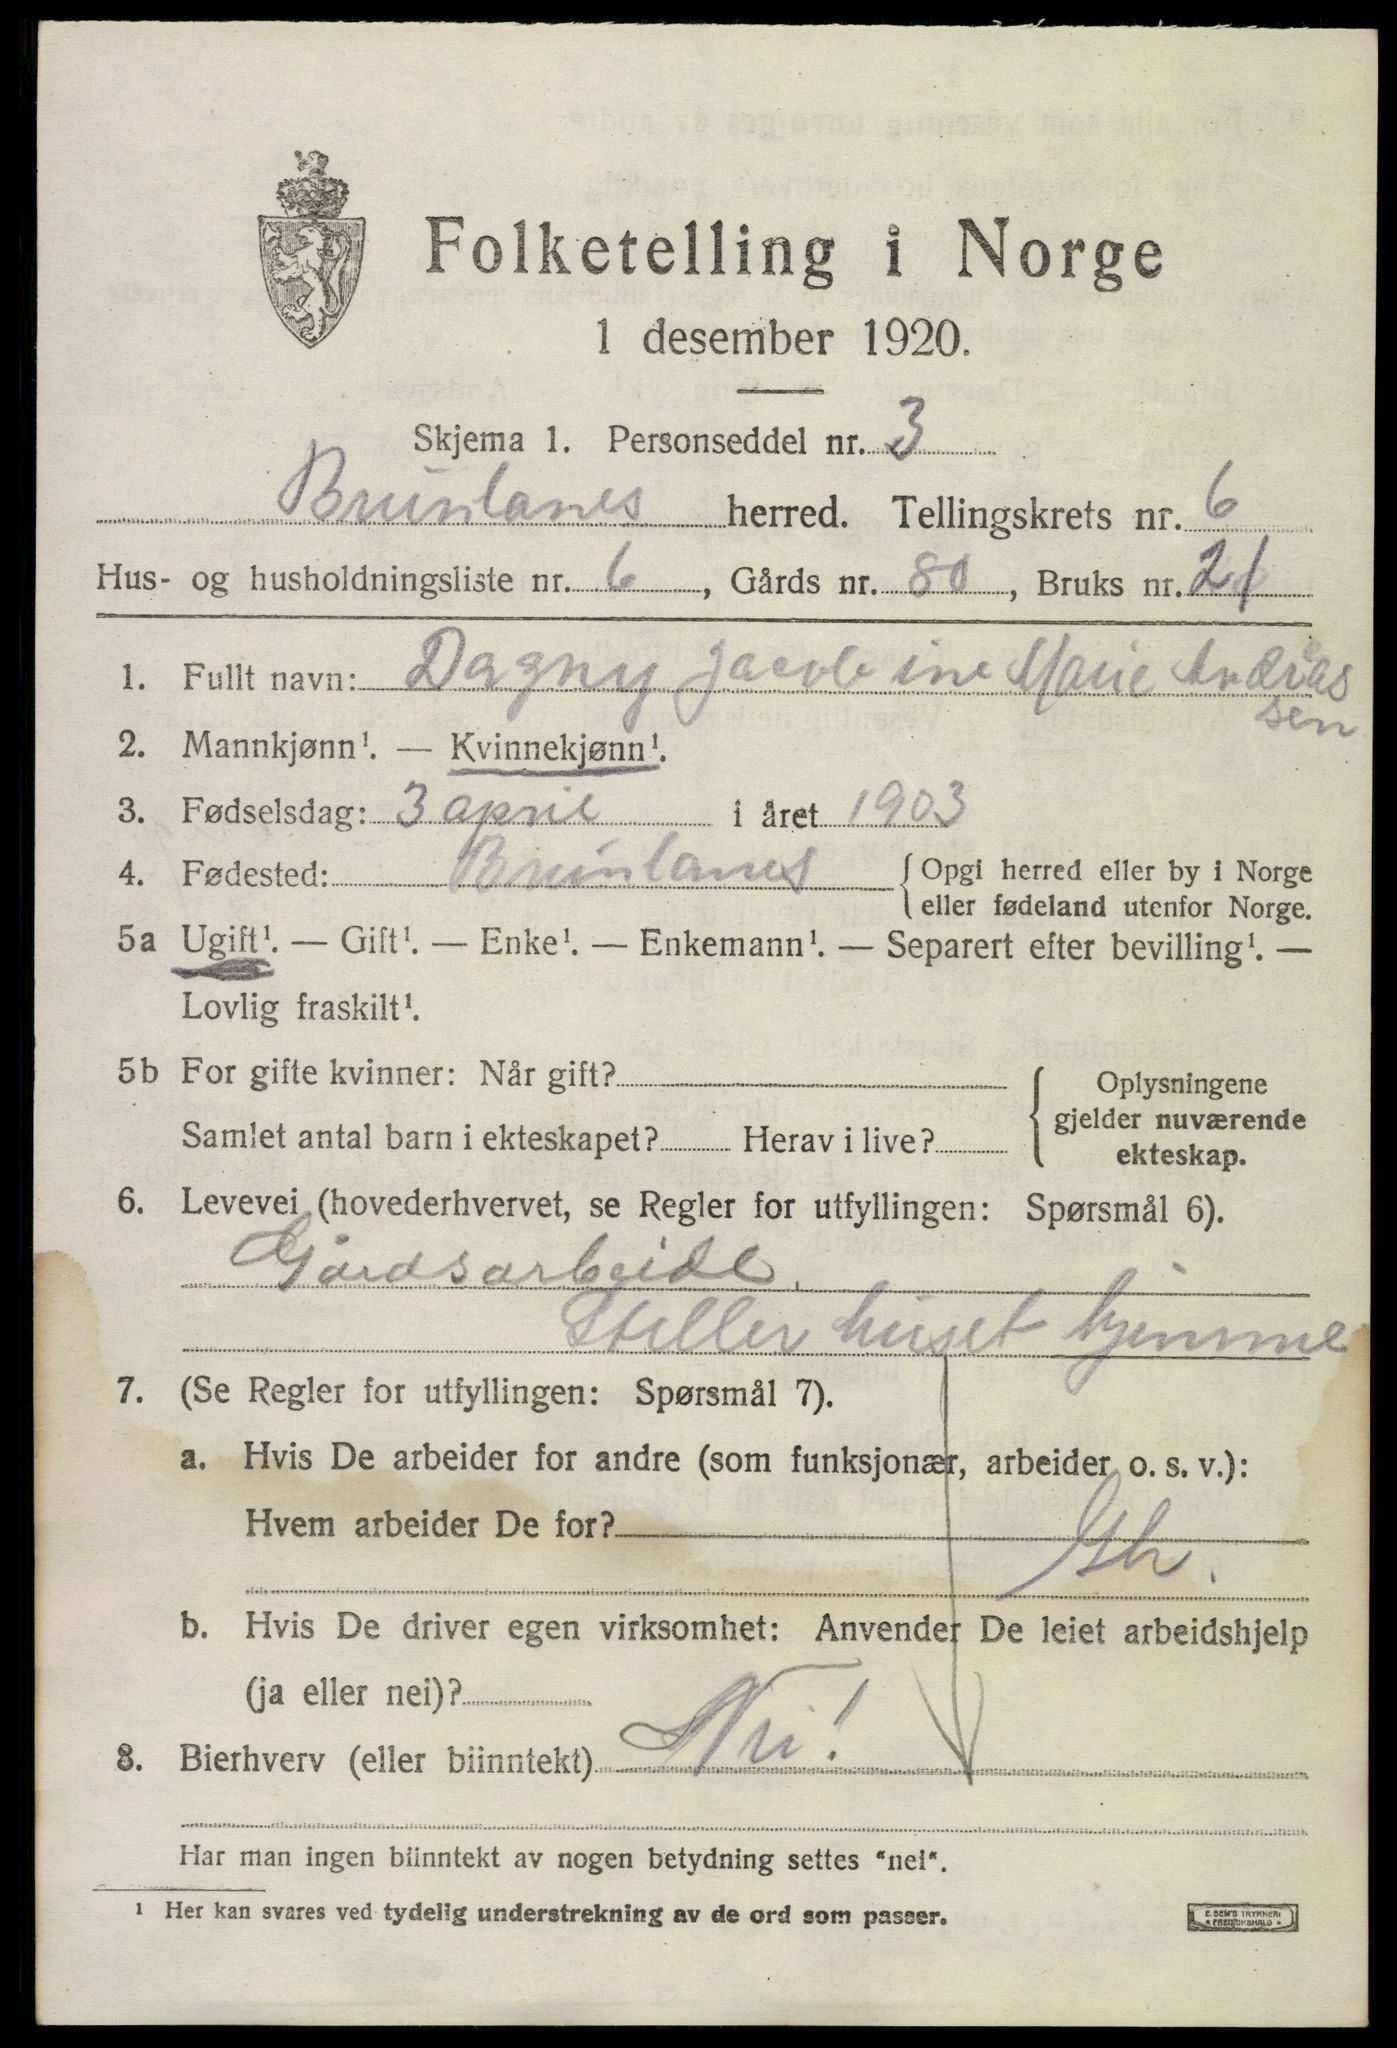 Folketelling i Norge
1 desember 1920.
Skjema 1. Personseddel nr. 3
Brunlanes herred. Tellingskrets nr. 6
Hus- og husholdningsliste nr. 6, Gårds nr. 80, Bruks nr. 21
1. Fullt navn: Dagny Jacobine Marie Andreas
sen
2. Mannkjønn¹. — Kvinnekjønn¹.
3. Fødselsdag: 3 april i året 1903
4. Fødested: Brunlanes { Opgi herred eller by i Norge
eller fødeland utenfor Norge.
5a Ugift¹. — Gift¹. — Enke¹. — Enkemann¹. — Separert efter bevilling¹. —
Lovlig fraskilt¹.
5b For gifte kvinner: Når gift? { Oplysningene
gjelder nuværende
Samlet antal barn i ekteskapet? Herav i live?
ekteskap.
6. Levevei (hovederhvervet, se Regler for utfyllingen: Spørsmål 6).
Gårdsarbeide.
Steller huset hjemme
7. (Se Regler for utfyllingen: Spørsmål 7).
a. Hvis De arbeider for andre (som funksjonær, arbeider o. s. v.):
Hvem arbeider De for?
Gh.
b. Hvis De driver egen virksomhet: Anvender De leiet arbeidshjelp
(ja eller nei)?
8. Bierhverv (eller biinntekt) Nei!
Har man ingen biinntekt av nogen betydning settes "nei".
¹ Her kan svares ved tydelig understrekning av de ord som passer.
E. SEM'S TRYKKERI
FREDRIKSHALD